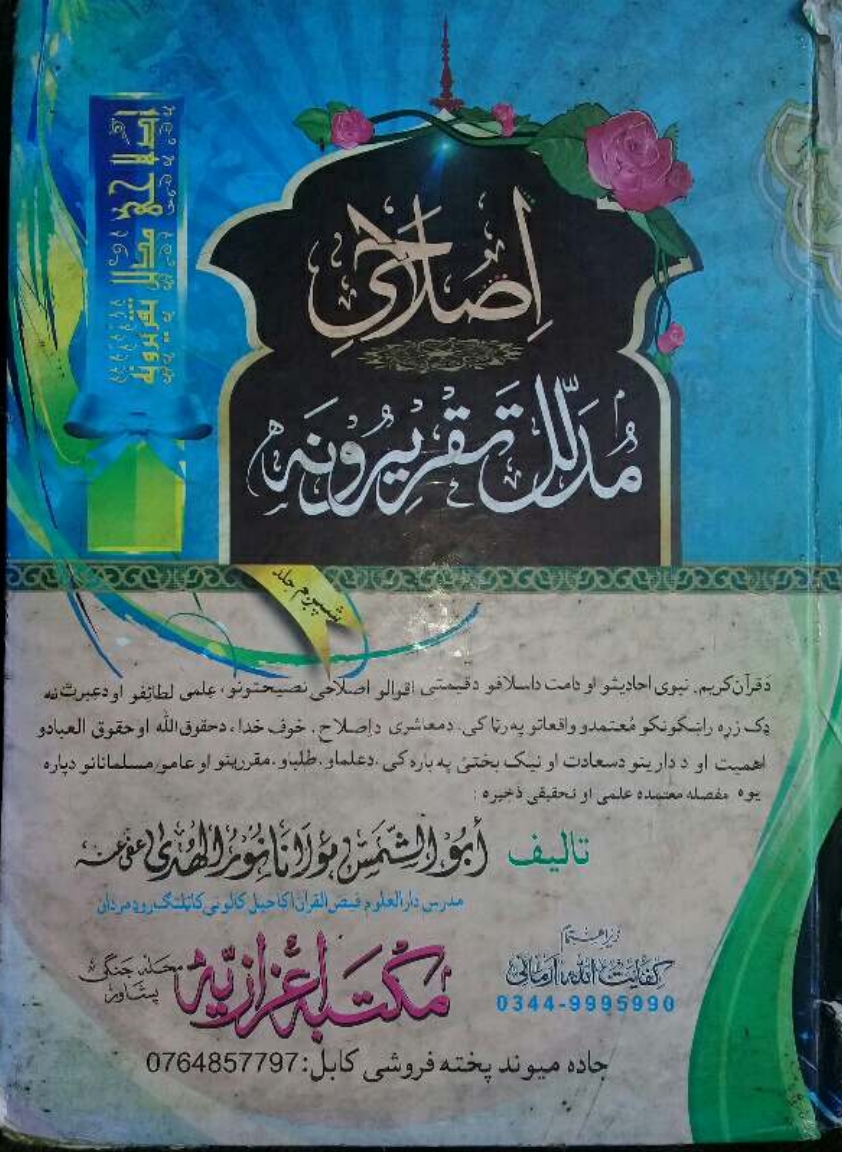 اصلاحي مدلل تقريرونه
اِصْلَاحِي
مُدَلَّل تَقْرِيرُونَه
شپږم جلد
دَقرآن کریم، نبوی احادیثو او دامت داسلافو دقیمتی اقوالو اصلاحی نصیحتونو، علمی لطائفو اودعبرت نه
ډک زړه راښکونکو مُعتمدو واقعاتو په رڼا کی، دمعاشری داِصلاح، خوف خدا، دحقوق الله اوحقوق العبادو
اهمیت او د دارینو دسعادت او نیک بختۍ په باره کی، دعلماو، طلباو، مقررینو او عامو مسلمانانو دپاره
یوه مفصله معتمده علمی او تحقیقی ذخیره :
تالیف أبو الشمس مولانا نور الهدی عفی عنه
مدرس دارالعلوم فیض القرآن اکاخیل کالونی کاټلنګ روډ مردان
زیر اهتمام
کفایت الله ارمانی
0344-9995990
مکتبه اعزازیه
محله جنګی پشاور
جاده میوند پخته فروشی کابل: 0764857797